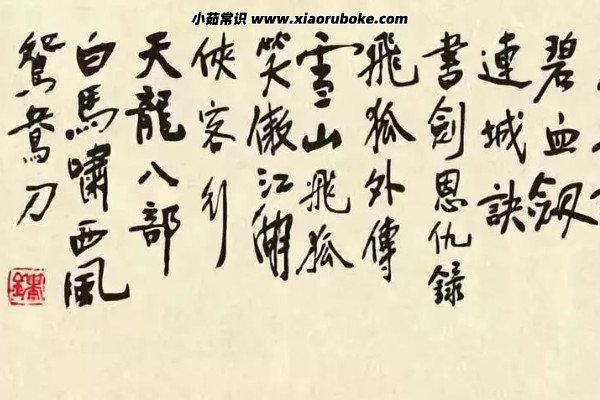 小茹常识 www.xiaoruboke.com
碧血劍
連城訣
書劍恩仇錄
飛狐外傳
雪山飛狐
笑傲江湖
俠客行
天龍八部
白馬嘯西風
鴛鴦刀